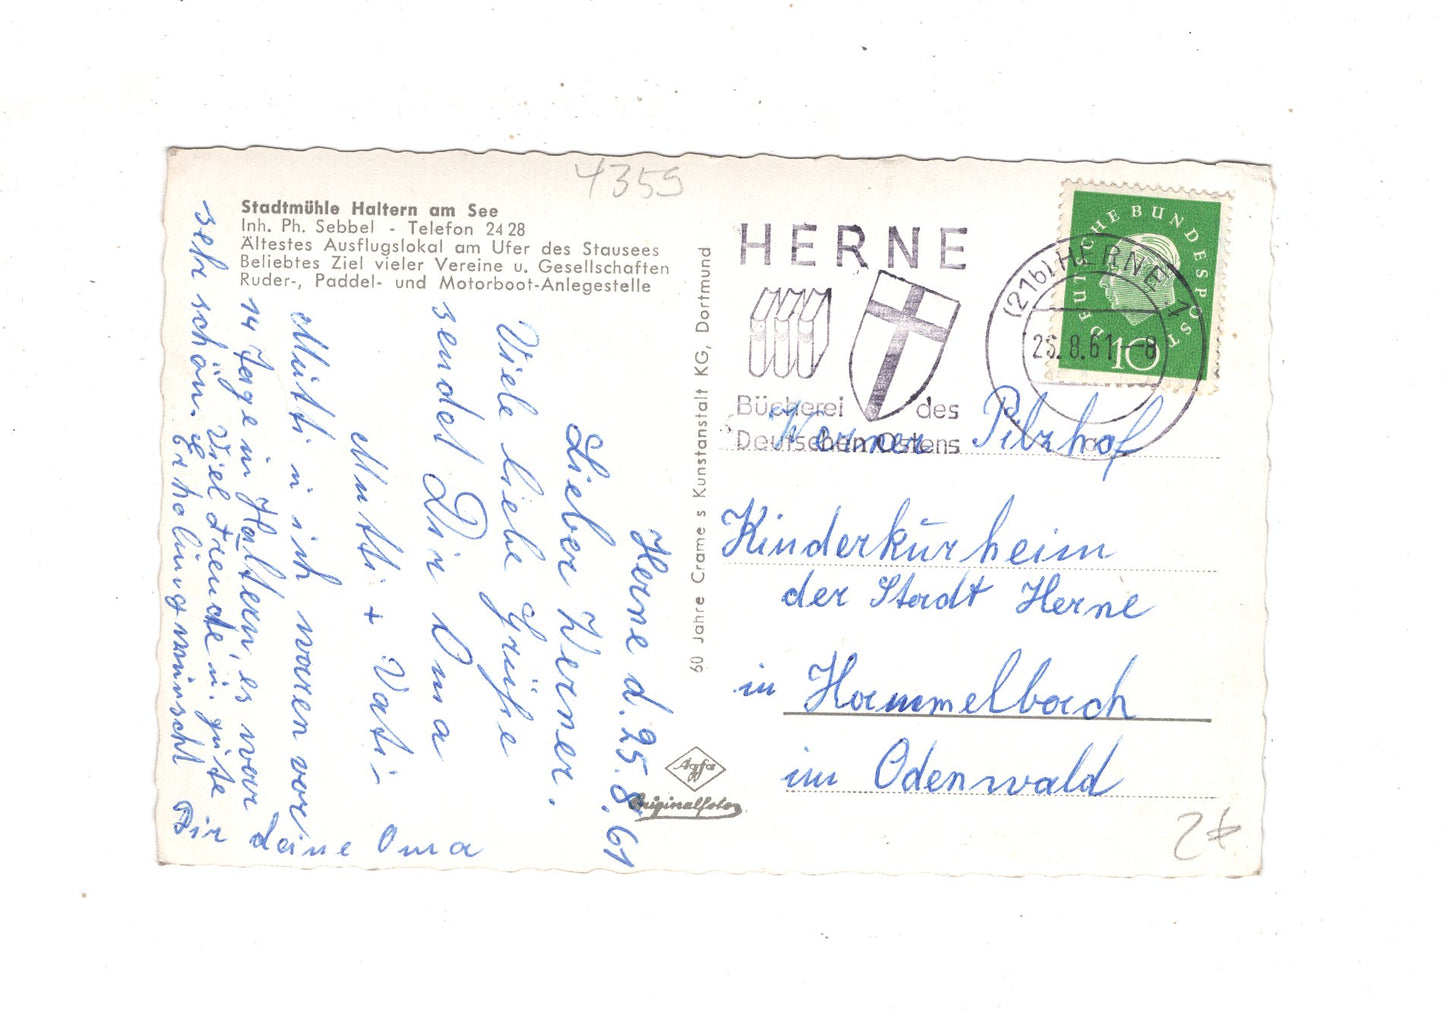 4355
Stadtmühle Haltern am See
Inh. Ph. Sebbel - Telefon 24 28
Ältestes Ausflugslokal am Ufer des Stausees
Beliebtes Ziel vieler Vereine u. Gesellschaften
Ruder-, Paddel- und Motorboot-Anlegestelle
Herne d. 25.8.61
Lieber Werner.
Viele liebe Grüße
sendet Dir Oma
Mutti + Vati-
Mutti u ich waren vor
14 Tage in Haltern, es war
sehr schön. Viel Freude u. gute
Erholung wünscht
Dir Deine Oma
60 Jahre Crame s Kunstanstalt KG, Dortmund
Agfa
Originalfoto
HERNE
Bücherei des
Deutschen Ostens
(21b) HERNE 1
26.8.61-8
DEUTSCHE BUNDESPOST
10
Werner Pilzhof
Kinderkurheim
der Stadt Herne
in Hammelbach
im Odenwald